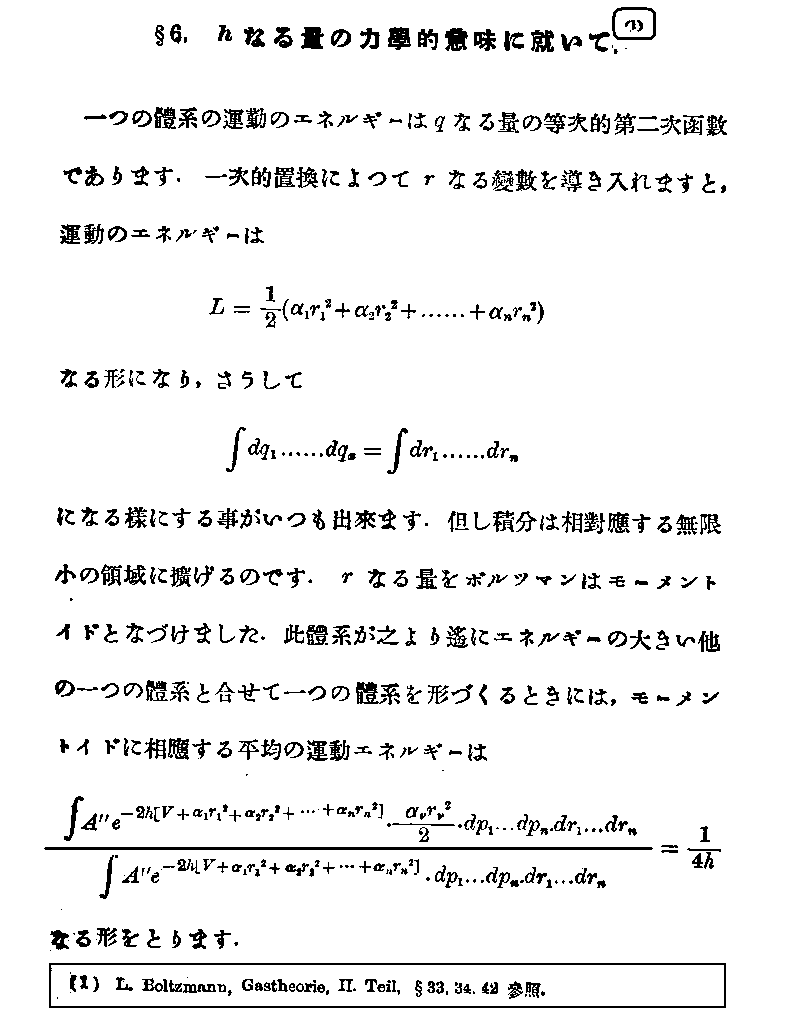 §6. h なる量の力學的意味に就いて.(1)
一つの體系の運動のエネルギーは q なる量の等次的第二次函數
であります. 一次的置換によつて r なる變數を導き入れますと,
運動のエネルギーは
L = 1/2(α₁r₁²+α₂r₂²+......+αₙrₙ²)
なる形になり, さうして
∫dq₁......dqₙ = ∫dr₁......drₙ
になる樣にする事がいつも出來ます. 但し積分は相對應する無限
小の領域に擴げるのです. r なる量をボルツマンはモーメント
イドとなづけました. 此體系が之より遙にエネルギーの大きい他
の一つの體系と合せて一つの體系を形づくるときには, モーメン
トイドに相應する平均の運動エネルギーは
∫A''e^{-2h[V+α₁r₁²+α₂r₂²+ ··· +αₙrₙ²]}·(αᵥrᵥ²/2)·dp₁...dpₙ.dr₁...drₙ / ∫A''e^{-2h[V+α₁r₁²+α₂r₂²+···+αₙrₙ²]}·dp₁...dpₙ.dr₁...drₙ = 1/4h
なる形をとります.
(1) L. Boltzmann, Gastheorie, II. Teil, §33, 34, 42 參照.